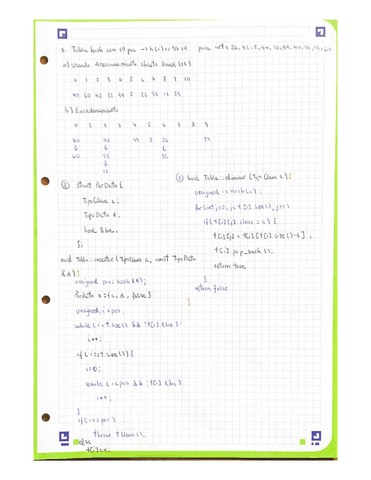 1. Tabla hash con 10 pos
a) Usando direccionamiento abierto lineal
0 1 2 3 4 5 6 7 8 9 10
40 60 42 32 44 5 26 36 12 54
b) Encadenamiento
0 1 2 3 4 5 6 7 8 9
40 42 44 5 26
60 32 36
12
② struct ParDato {
TipoClave c;
TipoDato d;
bool libre;
};
void Tabla::insertar (TipoClave c, const TipoDato
&d) {
unsigned pos = hash (c);
ParDato x = {c, d, false}
unsigned i = pos;
while (i < t.size() && !t[i].libre)
i++;
if (i == t.size()) {
i=0;
while (i < pos && !t[i].libre)
i++;
}
if (i == pos)
throw
else
t[i]=x;
③ bool Tabla::eliminar (TipoClave c) {
unsigned i = hash(c);
for (int j=0; j < t[i].size(); j++)
if (t[i][j].clave == c) {
t[i][j] = t[i][t[i].size()-1];
t[i].pop_back();
return true
}
return false
}